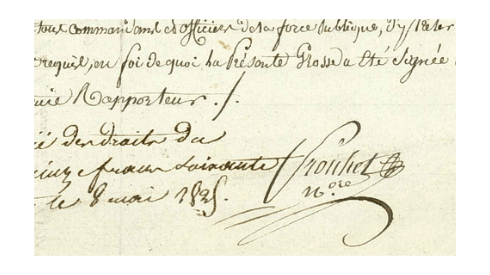 tous Commandans et officiers de la force Publique, d'y Prêter
requis, en foi de quoi La Présente Grosse a été Signée
Rapporteur ./.
des droits du
francs soixante
le 8 mai 1825. Trouhet
N.re